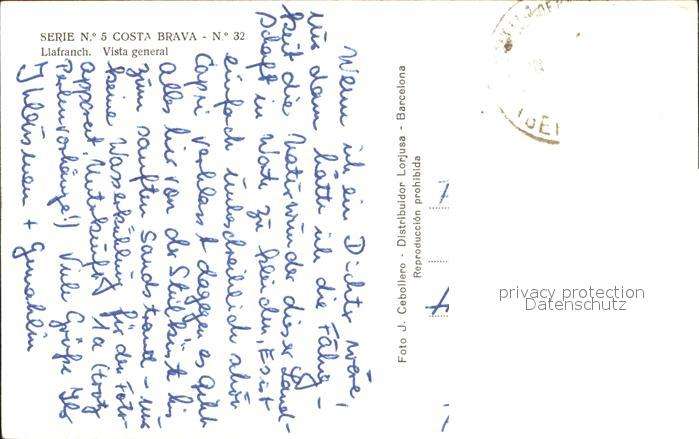 SERIE N.º 5 COSTA BRAVA - N.º 32
Llafranch. Vista general
Wenn ich ein Dichter wäre,
nur dann hätte ich die Fähig-
keit die Naturwunder dieser Land-
schaft in Worte zu kleiden. Es ist
einfach unbeschreiblich schön
Capri verblasst dagegen es gibt
alles hier von der Steilküste bis
zum sanften Sandstrand - nur
keine Wasserkühlung für den Foto-
apparat! Unterkunft 1a (trotz
Perlenvorhänge!) Viele Grüße Ihr
+ Gemahlin
Foto J. Cebollero - Distribuidor Lorjusa - Barcelona
Reproducción prohibida
privacy protection
Datenschutz